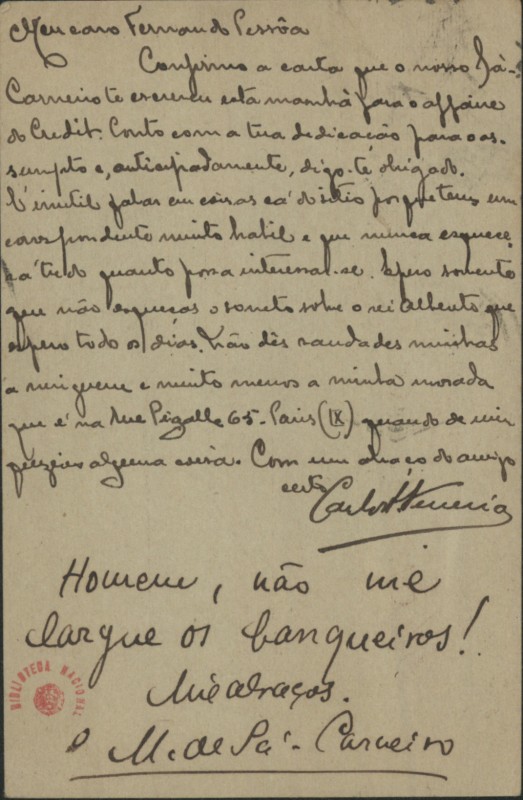 Meu caro Fernando Pessôa
Confirmo a carta que o nosso Sá-
Carneiro te escreveu esta manhã para o affaire
do Credit. Conto com a tua dedicação para o as-
sumpto e, anticipadamente, digo-te obrigado.
É inutil falar em coisas cá do sitio porque tens um
correspondente muito habil e que nunca esquece
tudo quanto possa interessar-se. Espero somente
que não esqueças o soneto sobre o rei Alberto que
espero todo os dias. Não dês saudades minhas
a ninguem e muito menos a minha morada
que é na Rue Pigalle 65 - Paris (IX) quando de mim
queiras alguma coisa. Com um abraço do amigo
certo
Carlos Ferreira
Homem, não me
largue os banqueiros!
Mil abraços.
o M. de Sá-Carneiro
BIBLIOTECA NACIONAL